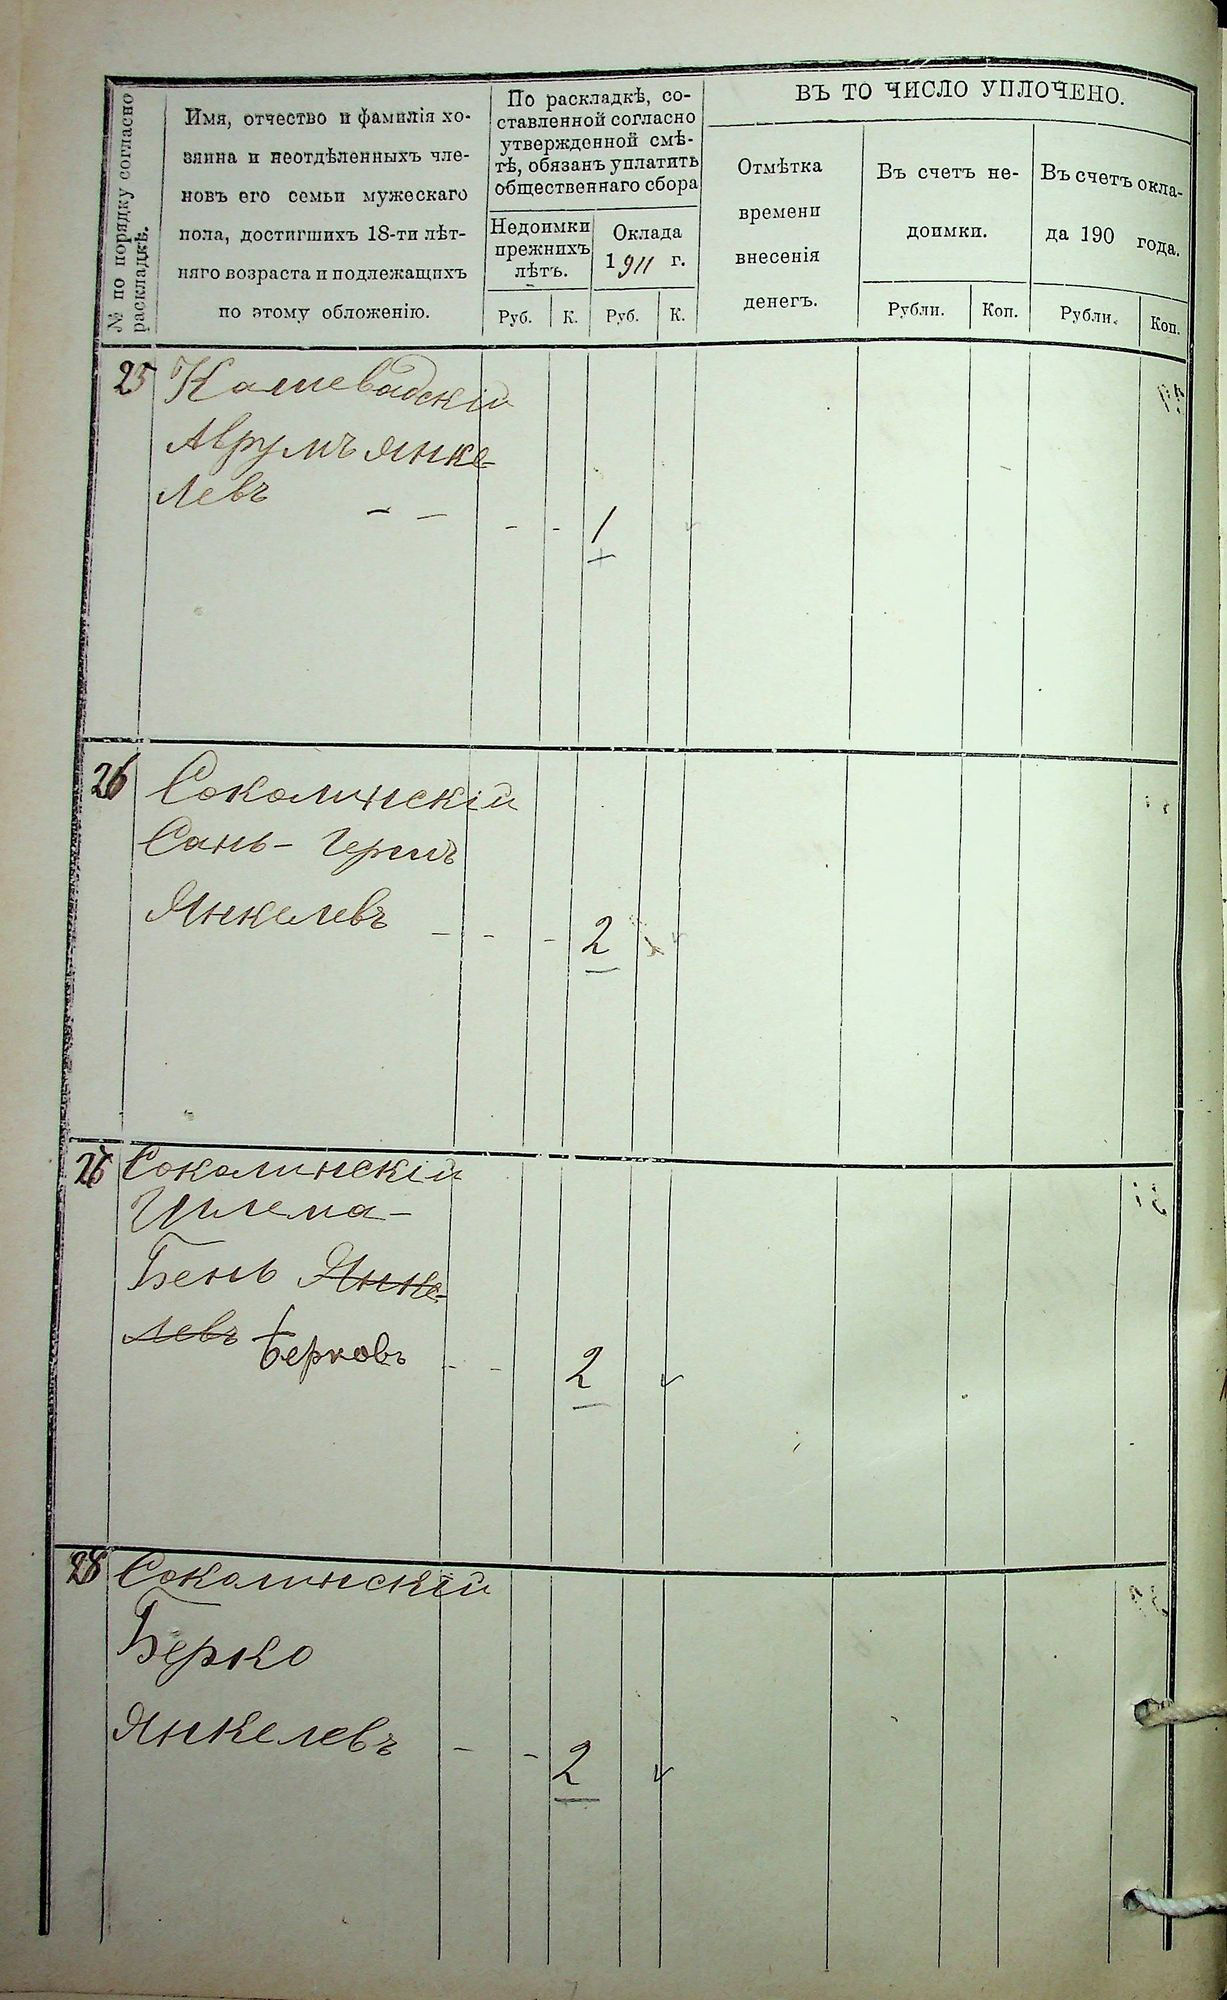 № по порядку согласно
раскладкѣ.
Имя, отчество и фамилія хо-
зяина и неотдѣленныхъ чле-
новъ его семьи мужескаго
пола, достигшихъ 18-ти лѣт-
няго возраста и подлежащихъ
по этому обложенію.
По раскладкѣ, со-
ставленной согласно
утвержденной смѣ-
тѣ, обязанъ уплатить
общественнаго сбора
Недоимки
прежнихъ
лѣтъ.
Оклада
1911 г.
Руб. К. Руб. К.
ВЪ ТО ЧИСЛО УПЛОЧЕНО.
Отмѣтка
времени
внесенія
денегъ.
Въ счетъ не-
доимки.
Рубли. Коп.
Въ счетъ окла-
да 190 года.
Рубли. Коп.
25
Аврумъ Янке-
левъ - - - - 1
26 Соколинскій
Сань- Герцъ
Янкелевъ - - - 2
Соколинскій
Шлема-
Бень Янке-
левъ Берковъ - - 2
28 Соколинскій
Берко
Янкелевъ - - 2